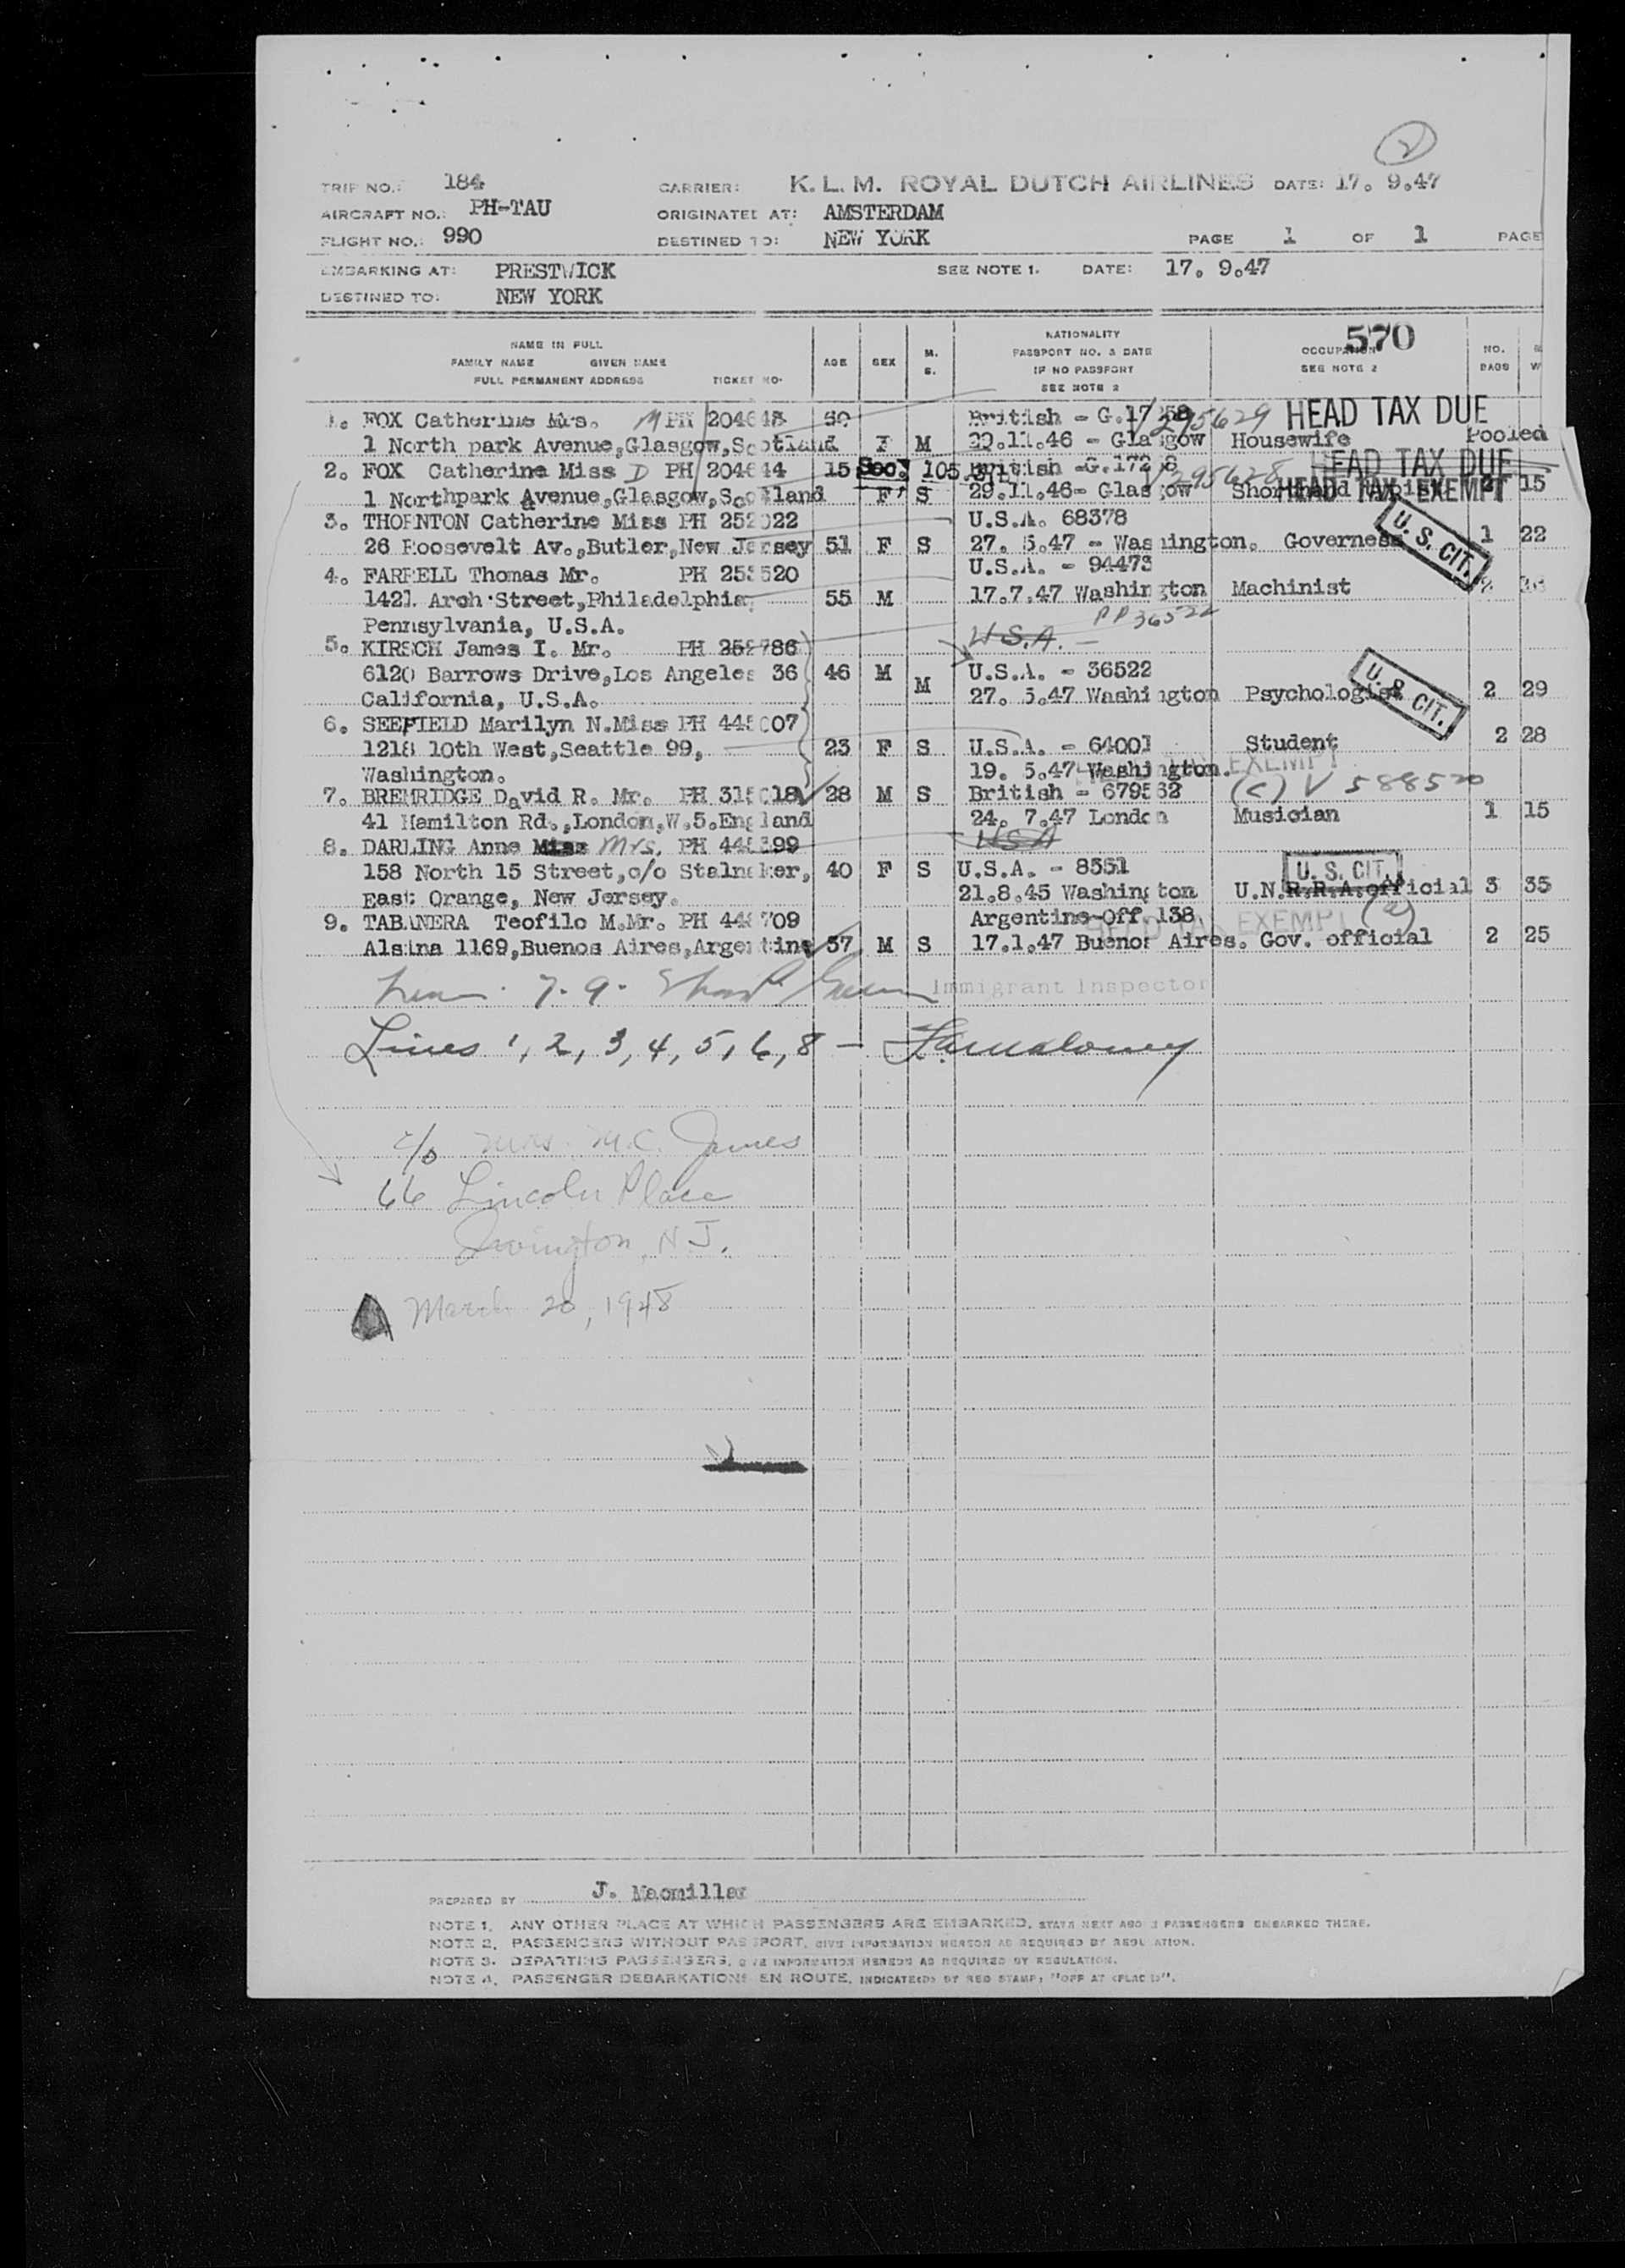 2
TRIP NO.: 184 CARRIER: K. L. M. ROYAL DUTCH AIRLINES DATE: 17. 9.47
AIRCRAFT NO.: PH-TAU ORIGINATED AT: AMSTERDAM
FLIGHT NO.: 990 DESTINED TO: NEW YORK PAGE 1 OF 1 PAGE
EMBARKING AT: PRESTWICK SEE NOTE 1. DATE: 17. 9.47
DESTINED TO: NEW YORK
570
NAME IN FULL
FAMILY NAME GIVEN NAME
FULL PERMANENT ADDRESS TICKET NO.
AGE SEX M. S.
NATIONALITY
PASSPORT NO. & DATE
IF NO PASSPORT
SEE NOTE 2
OCCUPATION
SEE NOTE 2
NO. BAGS W
1. FOX Catherine Mrs. M PH 204643 50 British - G. 295629 HEAD TAX DUE
1 North park Avenue,Glasgow,Scotland F M 29.11.46 - Glasgow Housewife Pooled
2. FOX Catherine Miss D PH 204644 15 Sec. 105 British -G. 295628 HEAD TAX DUE
1 Northpark Avenue,Glasgow,Scotland F S 29.11.46- Glasgow HEAD TAX EXEMPT 2 15
3. THORNTON Catherine Miss PH 252022 U.S.A. 68378
26 Roosevelt Av.,Butler,New Jersey 51 F S 27. 5.47 - Washington. Governess U. S. CIT. 1 22
4. FARRELL Thomas Mr. PH 253520 U.S.A. - 94473
1421 Arch Street,Philadelphia, 55 M 17.7.47 Washington Machinist
Pennsylvania, U.S.A. U.S.A. - PP 36522
5. KIRSCH James I. Mr. PH 252786
6120 Barrows Drive,Los Angeles 36 46 M M U.S.A. - 36522
California, U.S.A. 27. 5.47 Washington Psychologist U. S. CIT. 2 29
6. SEEFIELD Marilyn N.Miss PH 445007
1218 10th West,Seattle 99, 23 F S U.S.A. - 64001 Student 2 28
Washington. 19. 5.47 Washington. EXEMPT
7. BREMRIDGE David R. Mr. PH 315018 28 M S British - 679562 (c) V 588520
41 Hamilton Rd.,London,W.5.England 24. 7.47 London Musician 1 15
8. DARLING Anne Miss Mrs. PH 445399 USA
158 North 15 Street,c/o Stalnaker, 40 F S U.S.A. - 8551 U. S. CIT.
East Orange, New Jersey. 21.8.45 Washington U.N.R.R.A.official 3 35
9. TABANERA Teofilo M.Mr. PH 448709 Argentine-Off. 138 HEAD TAX EXEMPT (2)
Alsina 1169,Buenos Aires,Argentine 37 M S 17.1.47 Buenos Aires. Gov. official 2 25
7. 9. Immigrant Inspector
Lines 1, 2, 3, 4, 5, 6, 8 - F. Maloney
c/o Mrs. M.C. James
66 Lincoln Place
Irvington, N.J.
March 20, 1948
PREPARED BY J. Macmillar
NOTE 1. ANY OTHER PLACE AT WHICH PASSENGERS ARE EMBARKED, STATE NEXT ABOVE PASSENGERS EMBARKED THERE.
NOTE 2. PASSENGERS WITHOUT PASSPORT, GIVE INFORMATION HEREON AS REQUIRED BY REGULATION.
NOTE 3. DEPARTING PASSENGERS, GIVE INFORMATION HEREON AS REQUIRED BY REGULATION.
NOTE 4. PASSENGER DEBARKATIONS EN ROUTE, INDICATE(D) BY RED STAMP, "OFF AT (PLACE)".